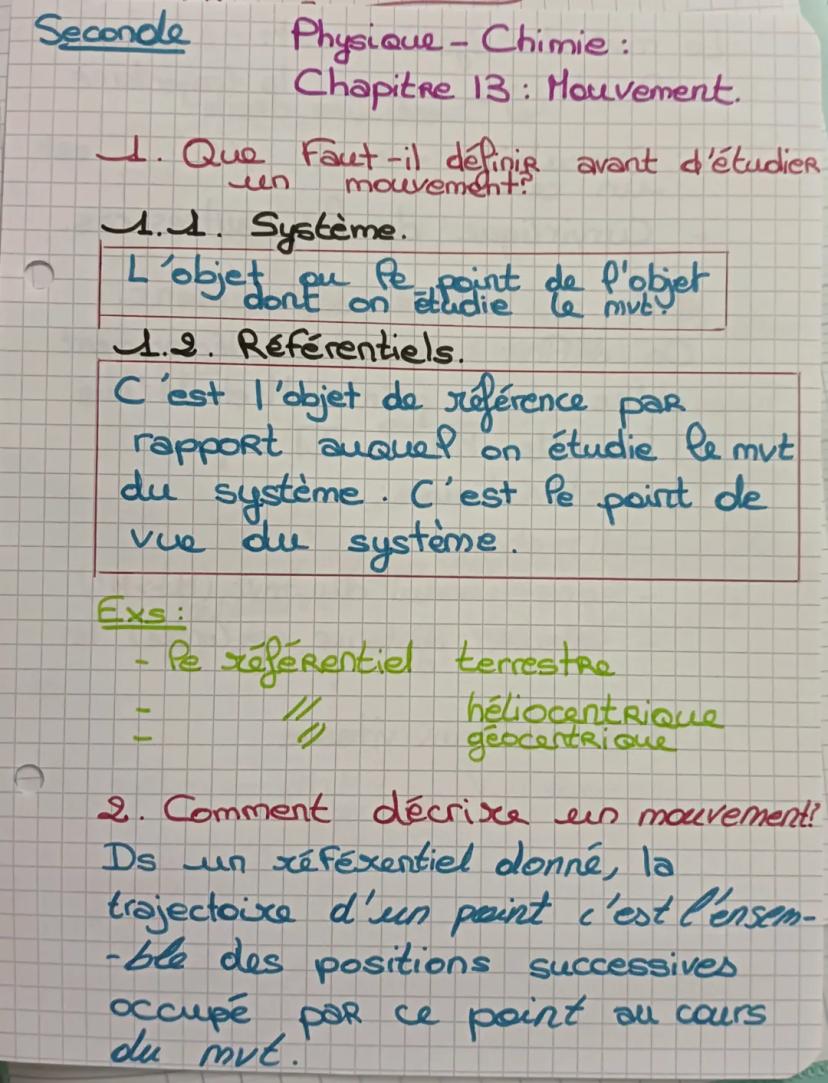 Seconde
Physique - Chimie :
Chapitre 13 : Mouvement.
1. Que Faut-il définir avant d'étudier
un mouvement?
1.1. Système.
L'objet ou le point de l'objet
dont on étudie le mvt.
1.2. Référentiels.
C'est l'objet de référence par
rapport auquel on étudie le mvt
du système. C'est le point de
vue du système.
Exs :
- le référentiel terrestre
- // héliocentrique
- // géocentrique
2. Comment décrire un mouvement?
Ds un référentiel donné, la
trajectoire d'un point c'est l'ensem-
-ble des positions successives
occupé par ce point au cours
du mvt.